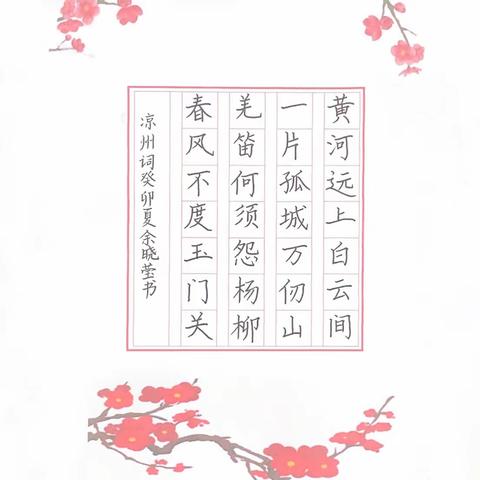 黄河远上白云间
一片孤城万仞山
羌笛何须怨杨柳
春风不度玉门关
凉州词癸卯夏余晓莹书